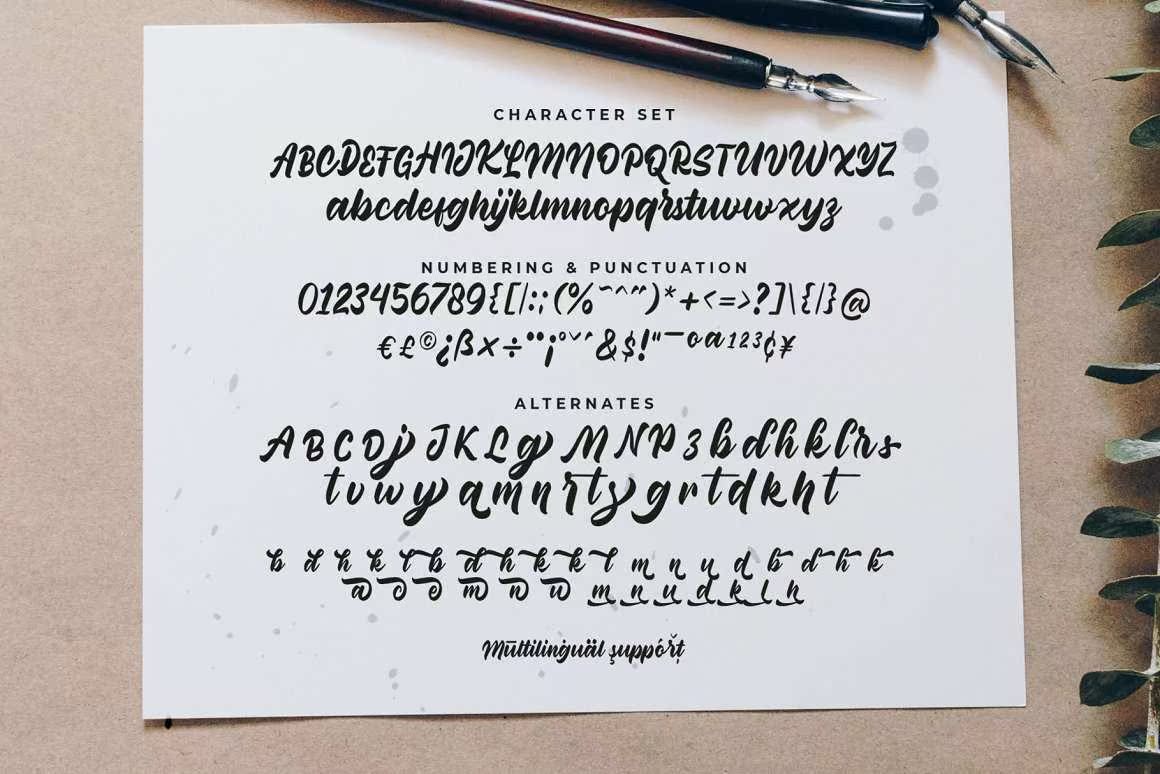 CHARACTER SET
ABCDEFGHIJKLMNOPQRSTUVWXYZ
abcdefghijklmnopqrstuvwxyz
NUMBERING & PUNCTUATION
0123456789{[/:;(%~^˝)*+<=>?]\{/}@
€£©¿ßx÷¨¡°ˇ´&$!"¯ºª¹²³¢¥
ALTERNATES
ABCDjJKLgMNPzbdhklrs
tvwyamnrtsgrtdkht
b d h k t b d h k k l m n u d b d h k
a o o m n w m n u d k l h
Mūltilinġuäl şuppóřţ